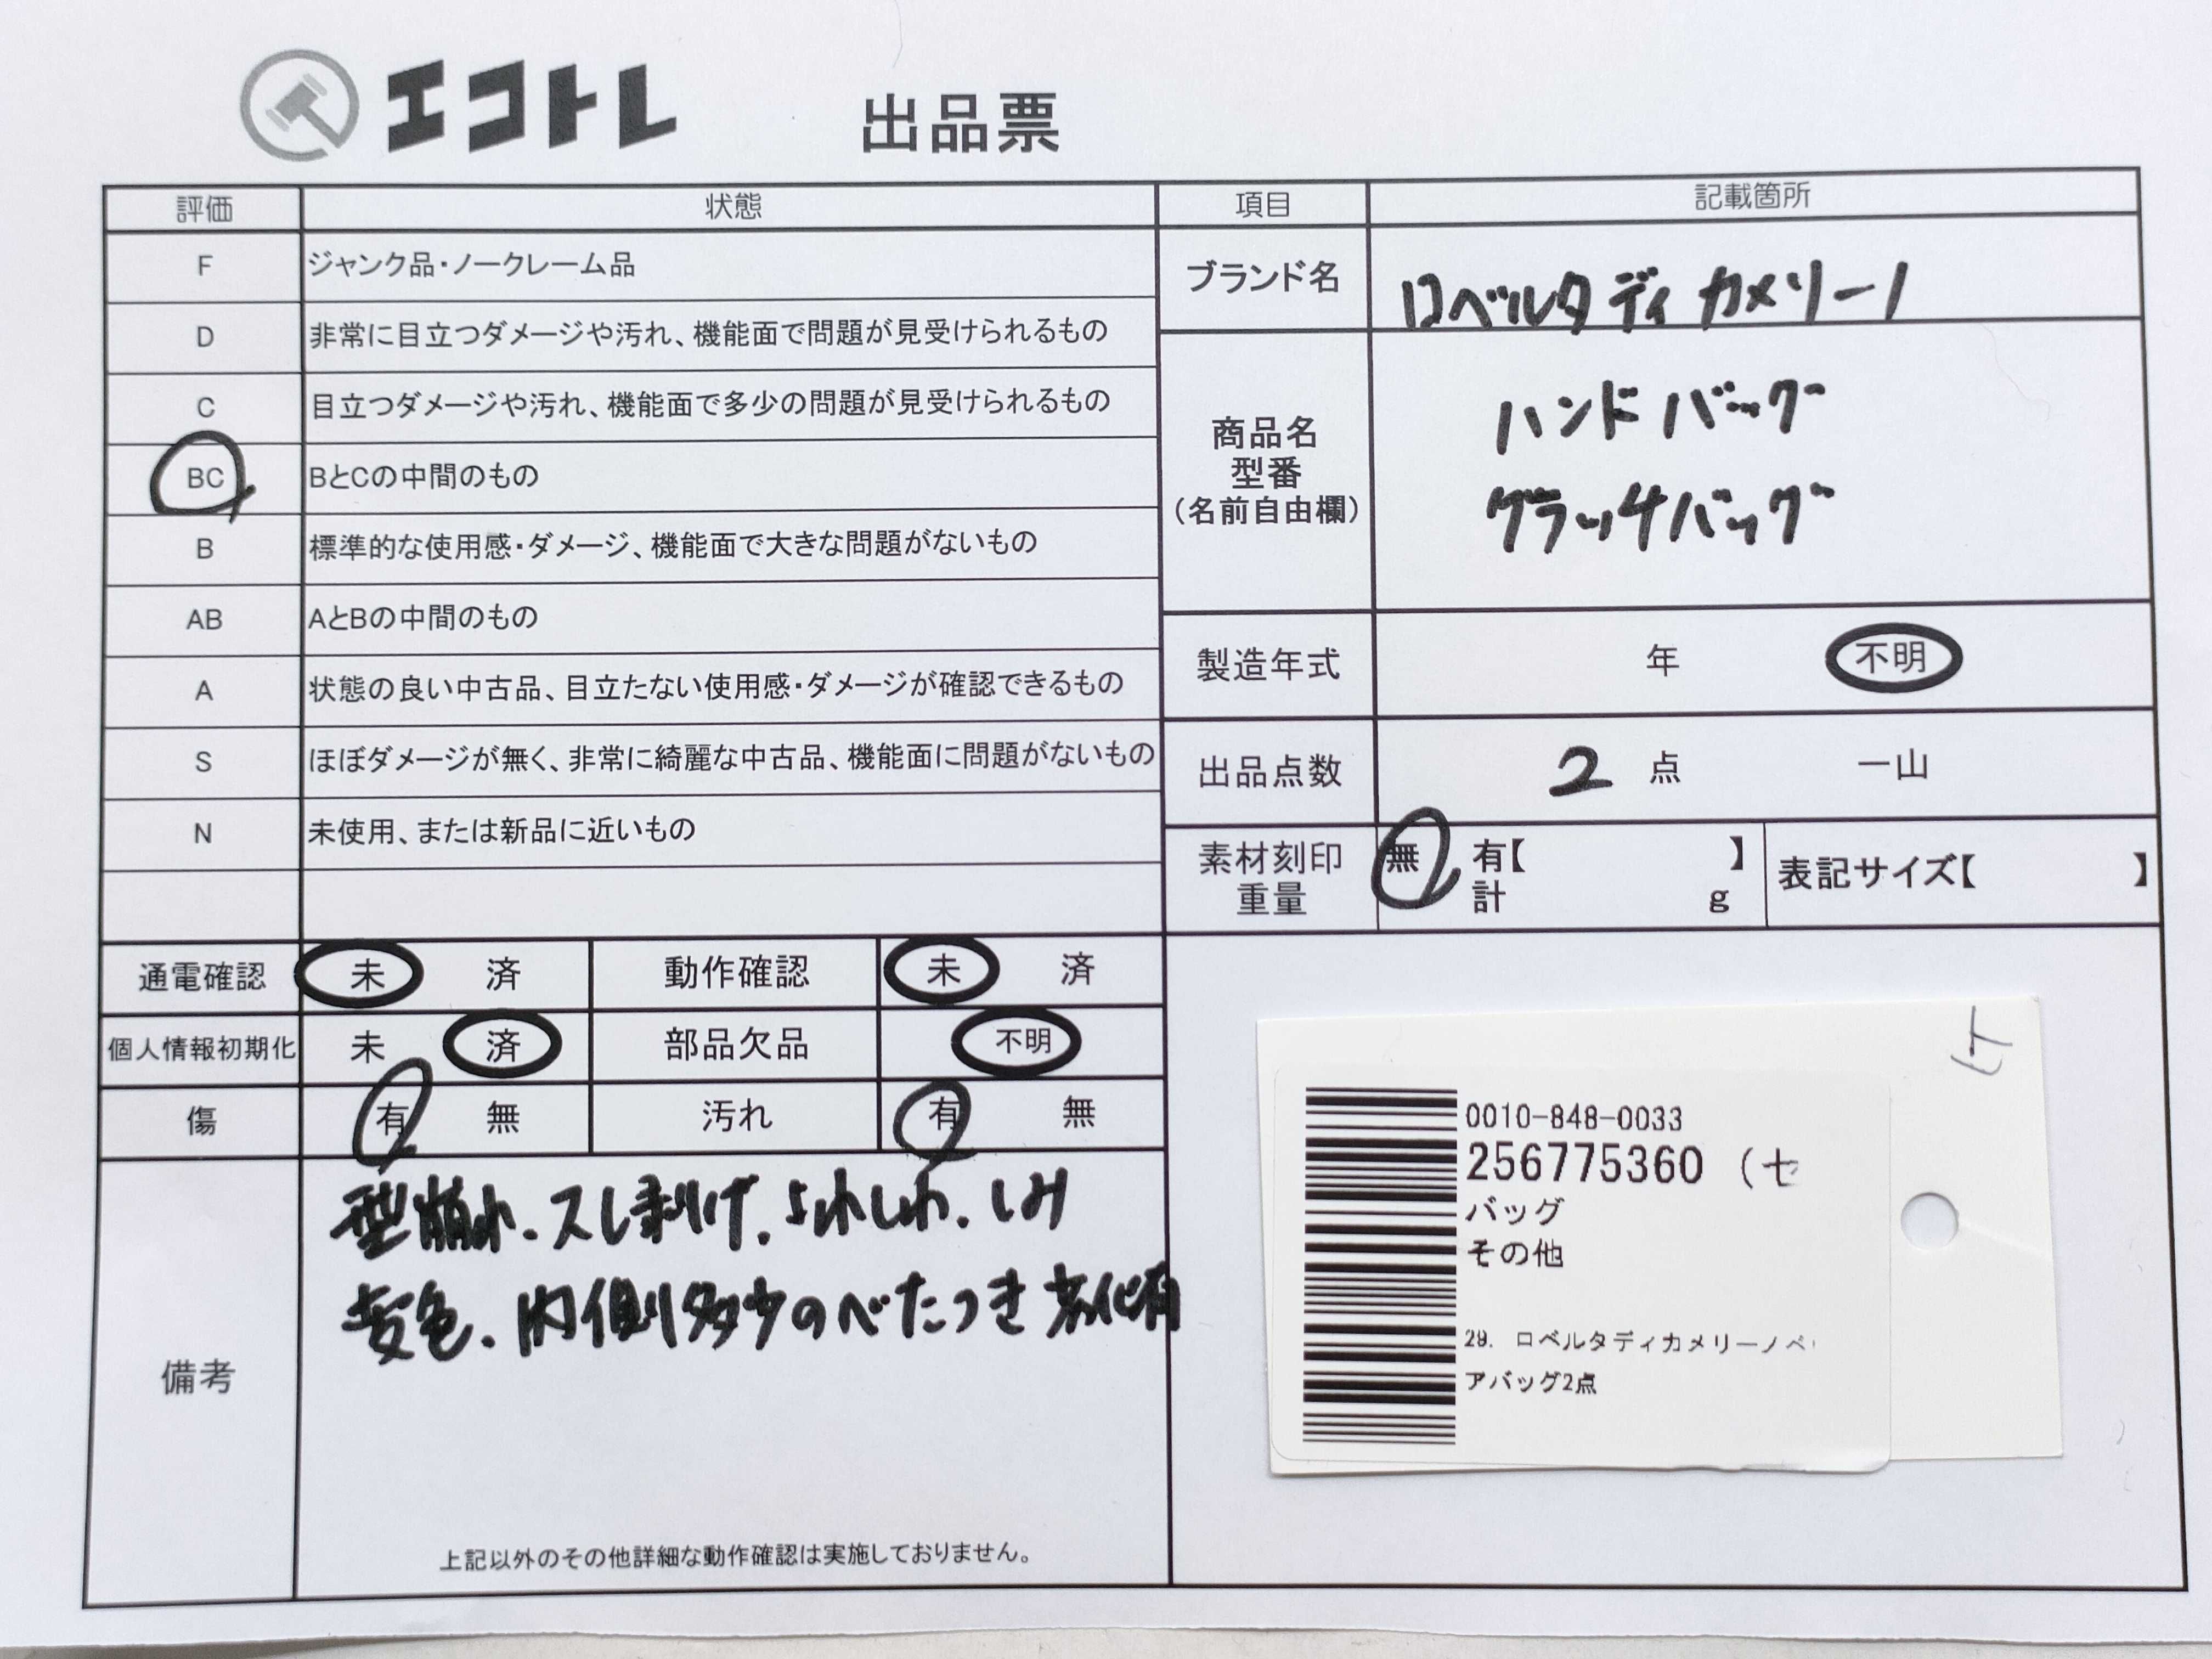 エコトレ 出品票
評価 状態
F ジャンク品・ノークレーム品
D 非常に目立つダメージや汚れ、機能面で問題が見受けられるもの
C 目立つダメージや汚れ、機能面で多少の問題が見受けられるもの
BC BとCの中間のもの
B 標準的な使用感・ダメージ、機能面で大きな問題がないもの
AB AとBの中間のもの
A 状態の良い中古品、目立たない使用感・ダメージが確認できるもの
S ほぼダメージが無く、非常に綺麗な中古品、機能面に問題がないもの
N 未使用、または新品に近いもの
通電確認 未 済 動作確認 未 済
個人情報初期化 未 済 部品欠品 不明
傷 有 無 汚れ 有 無
備考
型崩れ、スレ剥げ、よれしわ、しみ
変色、内側多少のべたつき劣化有
上記以外のその他詳細な動作確認は実施しておりません。
項目 記載箇所
ブランド名 ロベルタ ディ カメリーノ
商品名
型番
(名前自由欄)
ハンドバッグ
クラッチバッグ
製造年式 年 不明
出品点数 2 点 一山
素材刻印 無 有【 】
重量 計 g
表記サイズ【 】
0010-848-0033
256775360 (セ
バッグ
その他
29. ロベルタディカメリーノペ
アバッグ2点